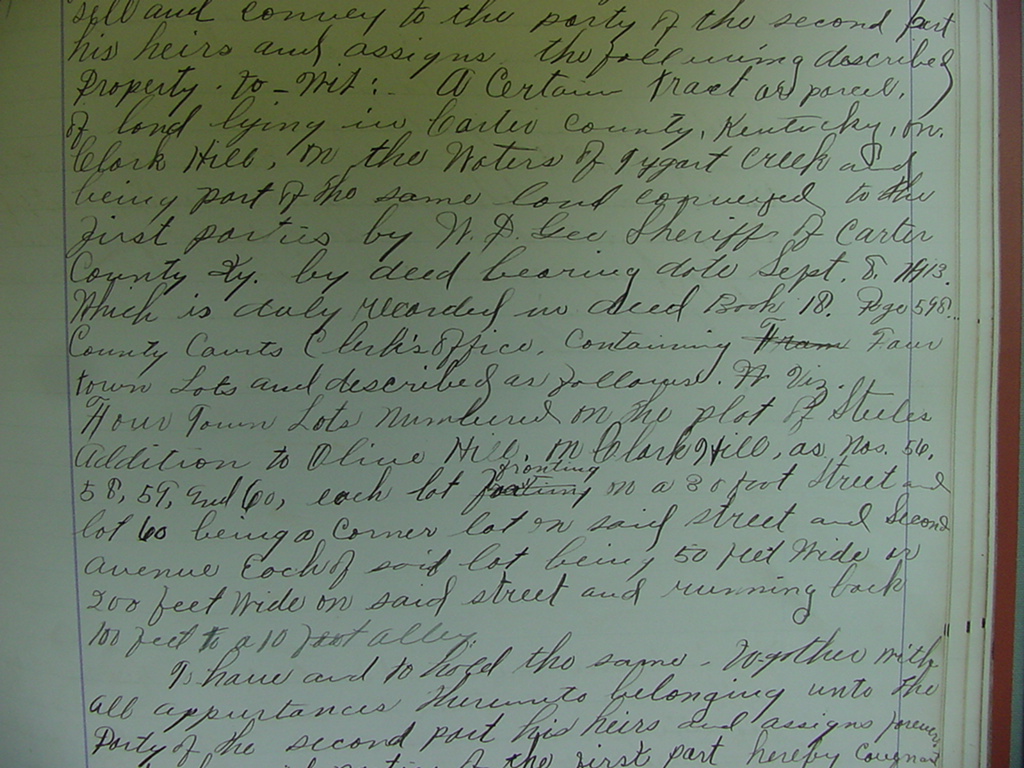 sell and convey to the party of the second part
his heirs and assigns the following described
Property. to-Wit:- A Certain tract or parcel,
of land lying in Carter County, Kentucky, on
Clark Hill, on the Waters of Tygart Creek and
being part of the same land conveyed to the
first parties by W. D. Gee Sheriff of Carter
County Ky. by deed bearing date Sept. 8.
Which is duly recorded in deed Book 18. Page 598.
County Courts Clerk's Office. Containing Four
town Lots and described as follows. Viz.
Four Town Lots Numbered on the plot of Steeles
Addition to Olive Hill, on Clark Hill, as Nos. 56,
58, 59, and 60, each lot fronting on a 30 foot Street and
lot 60 being a Corner lot on said street and Second
avenue Each of said lot being 50 feet Wide or
200 feet Wide on said street and running back
100 feet to a 10 foot alley
To have and to hold the same - Together with
all appurtances thereunto belonging unto the
Party of the second part his heirs and assigns forever
of the first part hereby Covenant